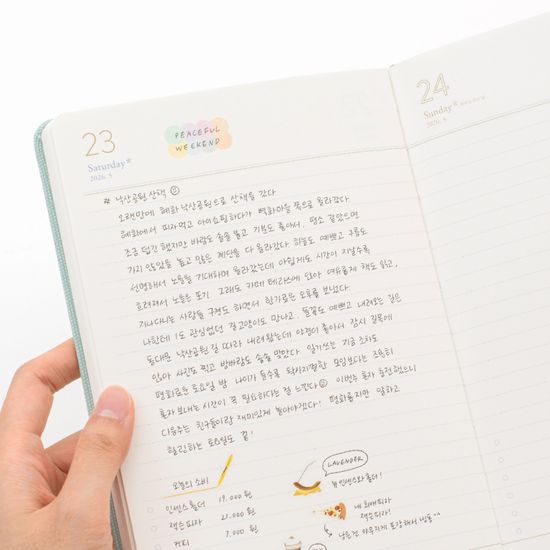 23
PEACEFUL
WEEKEND
Saturday*
2026. 5
# 낙산공원 산책
오랜만에 혜화 낙산공원으로 산책을 갔다.
혜화에서 피자먹고 아이쇼핑하다가 벽화마을 쪽으로 올라갔다.
조금 덥긴 했지만 바람도 솔솔 불고 기분도 좋아서. 평소 같았으면
가지 않았을 높고 많은 계단을 다 올라갔다. 하늘도 예쁘고 구름도
선명해서 노을을 기대하며 올라갔는데 아쉽게도 시간이 지날수록
흐려져서 노을은 포기. 그래도 카페 테라스에 앉아 여유롭게 책도 읽고,
지나다니는 사람들 구경도 하면서 한가로운 오후를 보냈다.
나한테 1도 관심없던 길고양이도 만나고. 들꽃도 예쁘고 내려오는 길은
동대문 낙산공원 길 따라 내려왔는데 야경이 좋아서 잠시 길목에
앉아 사진도 찍고 밤바람도 솔솔 맞았다. 일기쓰는 지금 소화도
평화로운 토요일 밤. 나이가 들수록 왁자지껄한 모임보다는 조용히
혼자 보내는 시간이 꼭 필요하다는 걸 느낀다 이번주 혼자 충전했으니
다음주는 친구들이랑 재미있게 놀아야겠다! 평화롭지만 알차고
힐링하는 토요일도 끝!
오늘의 소비
인센스 홀더 19.000 원
잭슨피자 21.000 원
커피 7.000 원
LAVENDER
인센스와 홀더!
내 최애피자
잭슨피자!
남은건 야무지게 포장해서 번동^^
24
Sunday*
2026. 5